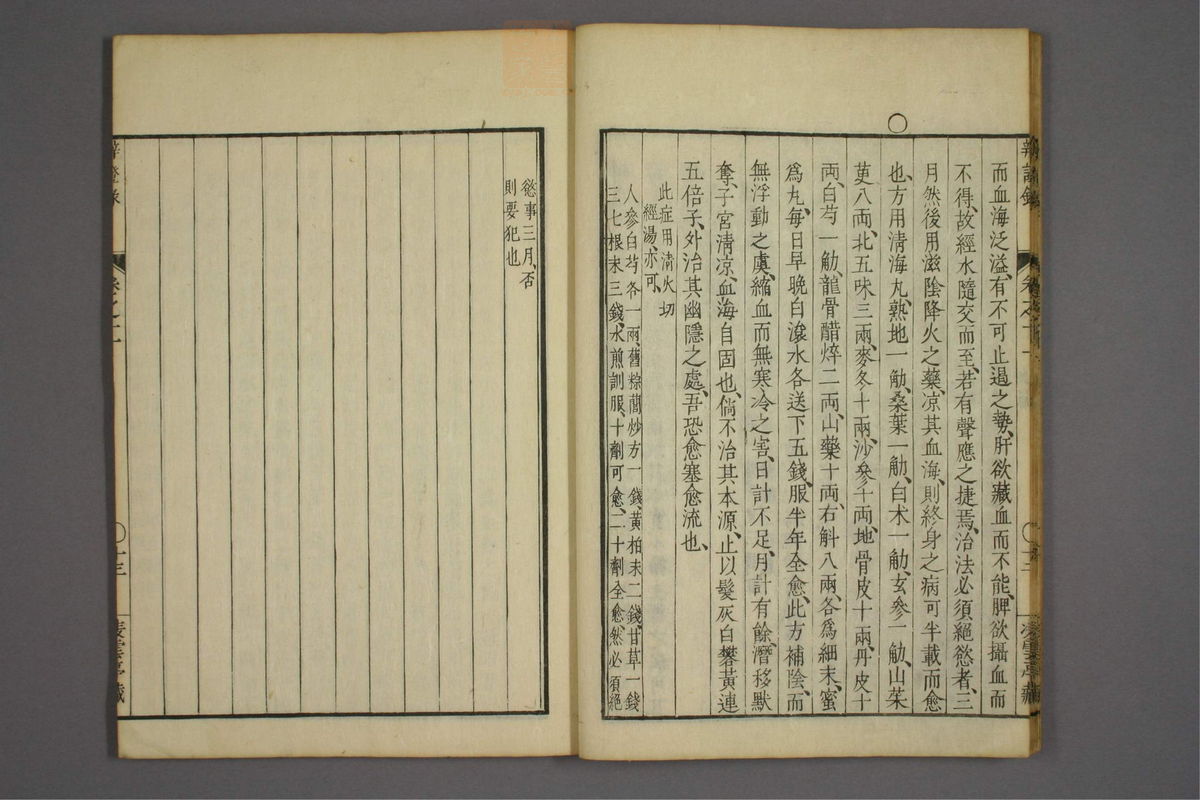 而血海泛溢、有不可止遏之勢、肝欲藏血而不能、脾欲攝血而
不得、故經水隨交而至、若有聲應之捷焉、治法必須絕慾者、三
月然後用滋陰降火之藥、凉其血海、則終身之病可半載而愈
也、方用清海丸、熟地一觔、桑葉一觔、白术一觔、玄參一觔、山茱
萸八兩、北五味三兩、麥冬十兩、沙參十兩、地骨皮十兩、丹皮十
兩、白芍一觔、龍骨醋焠二兩、山藥十兩、右斛八兩、各爲細末、蜜
爲丸、每日早晚白滾水各送下五錢、服半年全愈、此方補陰、而
無浮動之慮、縮血而無寒冷之害、日計不足、月計有餘、潛移默
奪、子宮清凉、血海自固也、倘不治其本源、止以髮灰白礬黃連
五倍子、外治其幽隱之處、吾恐愈塞愈流也、
此症用清火切
經湯、亦可、
人參白芍各一兩、舊粽藺炒方一錢、黃柏末二錢、甘草一錢
三七根末三錢、水煎訓服、十劑可愈、二十劑全愈、然必須絕
慾事三月、否
則要犯也